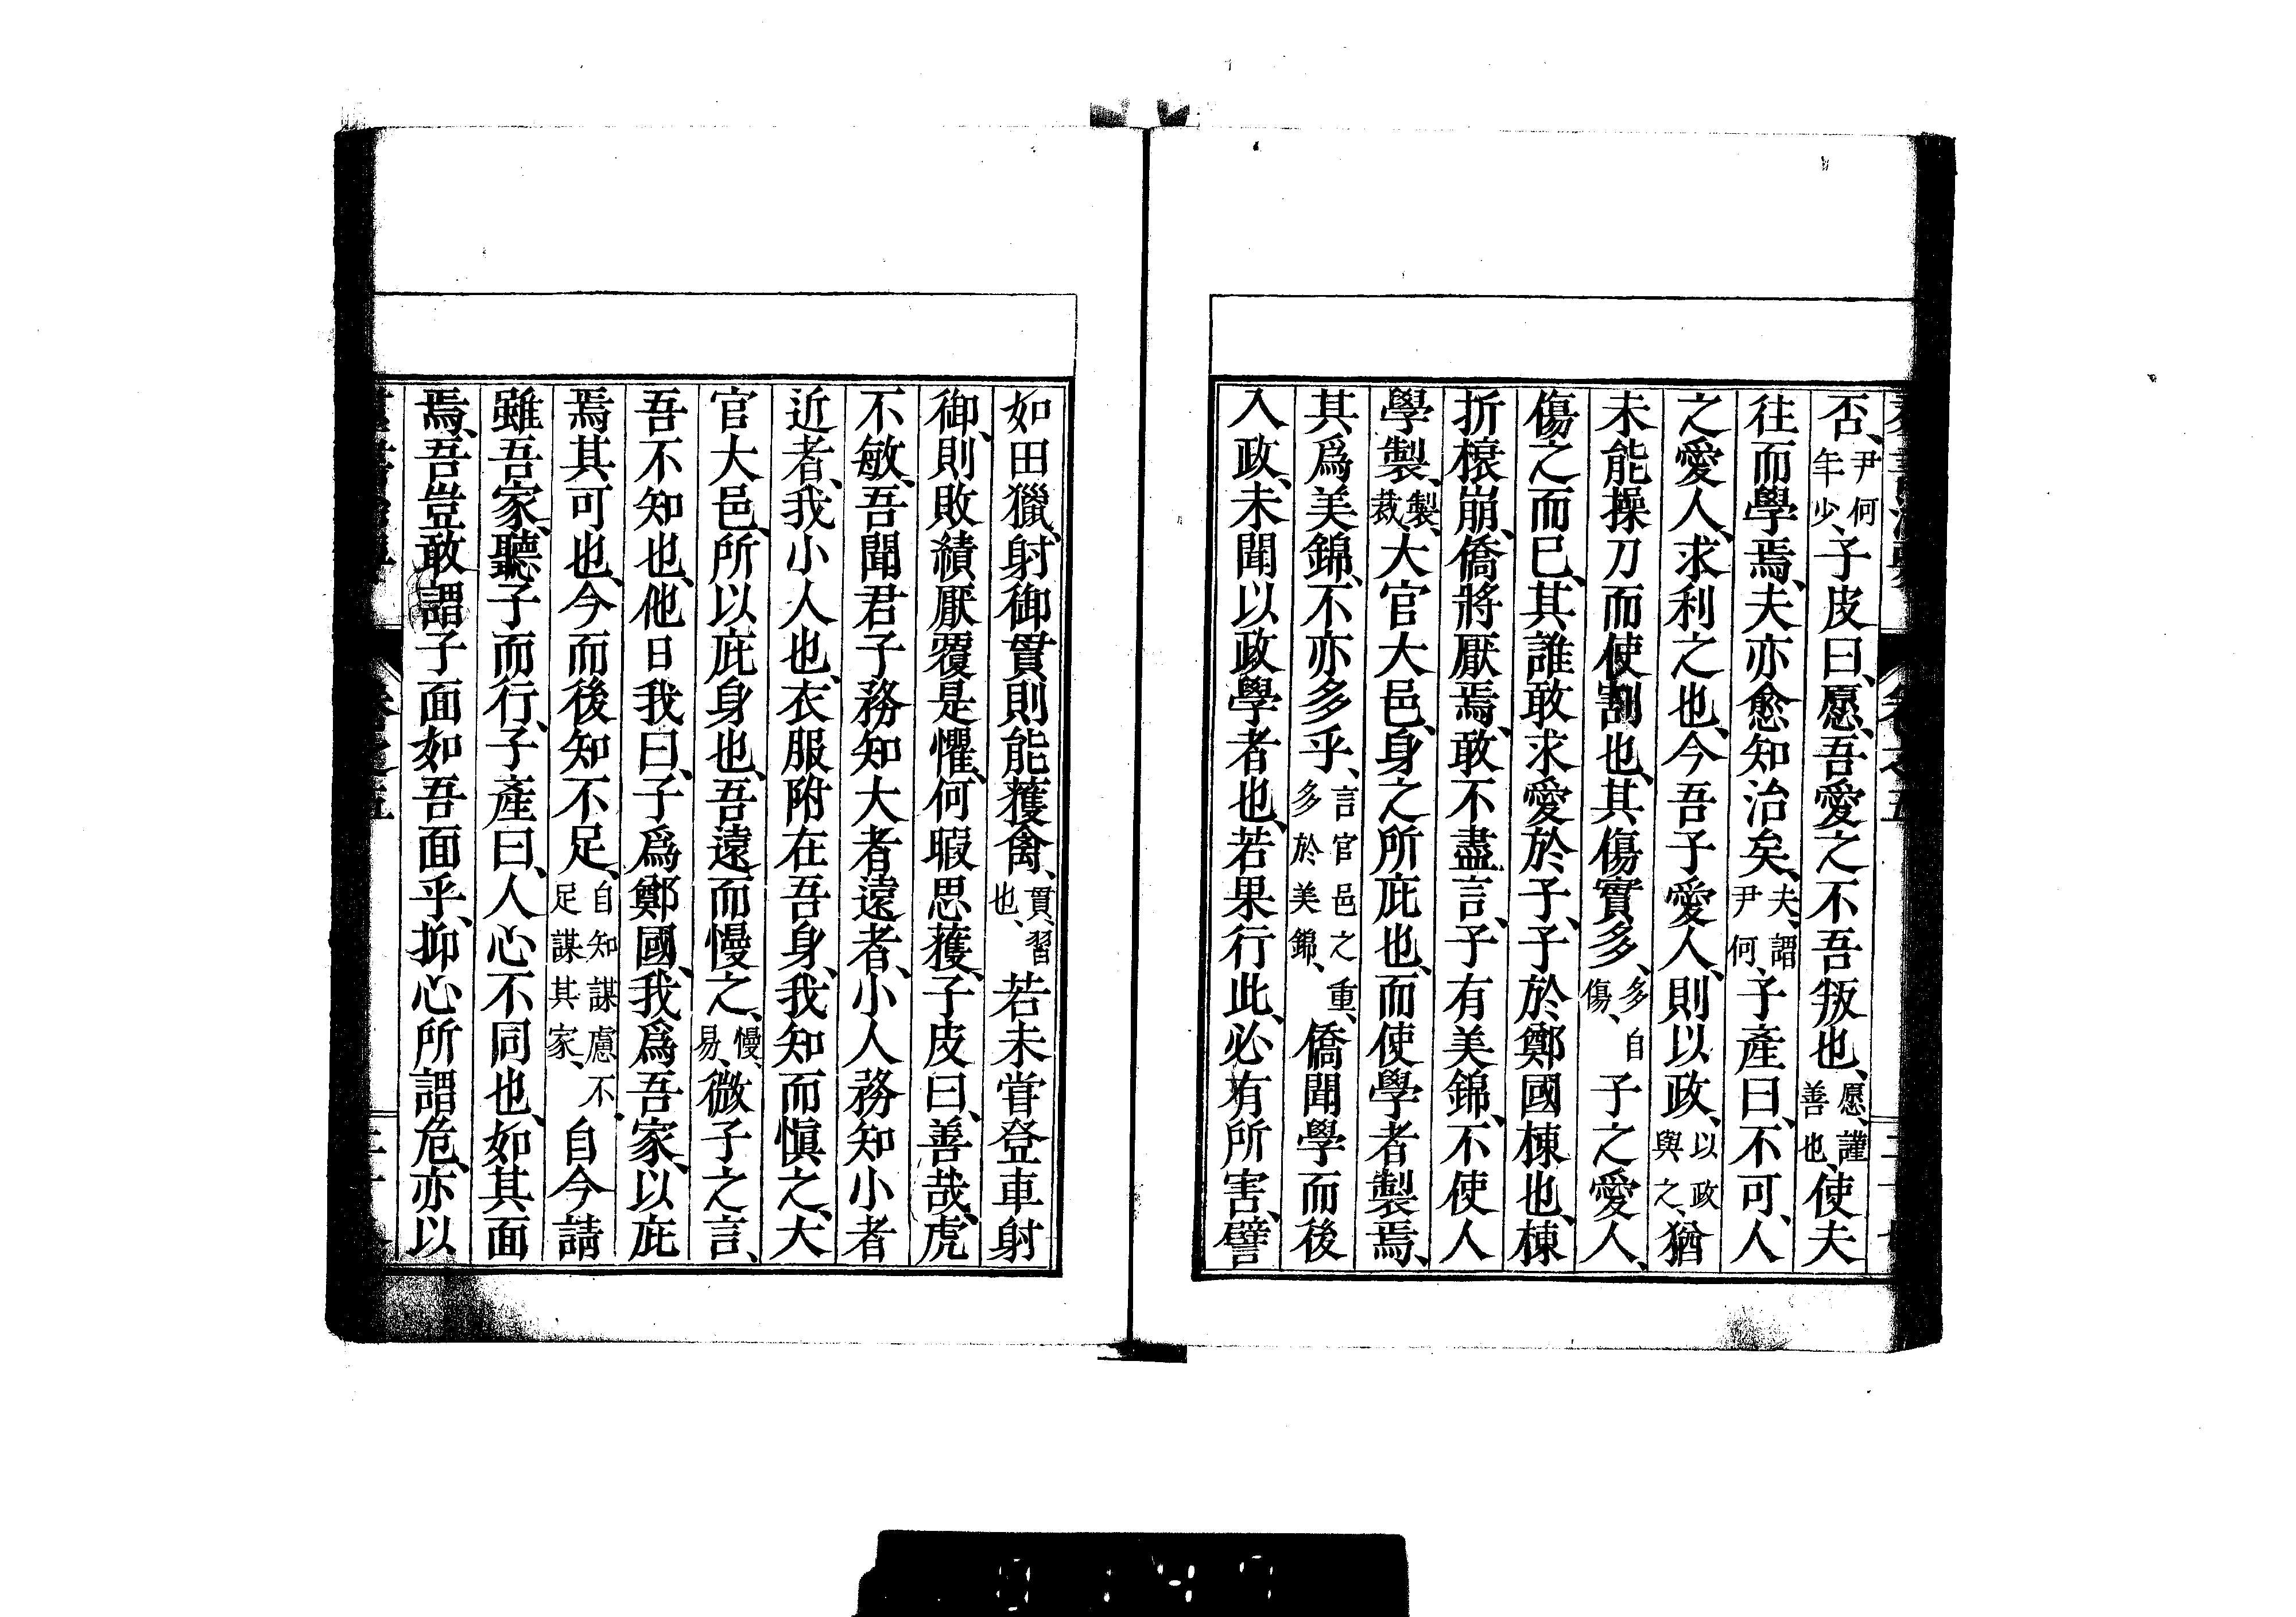 否、尹何年少、子皮曰、愿、吾愛之不吾叛也、愿、謹善也、使夫
往而學焉、夫亦愈知治矣、夫、謂尹何、子產曰、不可、人
之愛人、求利之也、今吾子愛人、則以政、以政與之、猶
未能操刀而使割也、其傷實多、多自傷、子之愛人、
傷之而已、其誰敢求愛於子、子於鄭國棟也、棟
折榱崩、僑將厭焉、敢不盡言、子有美錦、不使人
學製、製、裁、大官大邑、身之所庇也、而使學者製焉、
其爲美錦、不亦多乎、言官邑之重、多於美錦、僑聞學而後
入政、未聞以政學者也、若果行此、必有所害、譬
如田獵、射御貫則能獲禽、貫、習也、若未嘗登車射
御、則敗績厭覆是懼、何暇思獲、子皮曰、善哉、虎
不敏、吾聞君子務知大者遠者、小人務知小者
近者、我小人也、衣服附在吾身、我知而愼之、大
官大邑、所以庇身也、吾遠而慢之、慢、易、微子之言、
吾不知也、他日我曰、子爲鄭國、我爲吾家、以庇
焉、其可也、今而後知不足、自知謀慮不足謀其家、自今請
雖吾家、聽子而行、子產曰、人心不同也、如其面
焉、吾豈敢謂子面如吾面乎、抑心所謂危、亦以